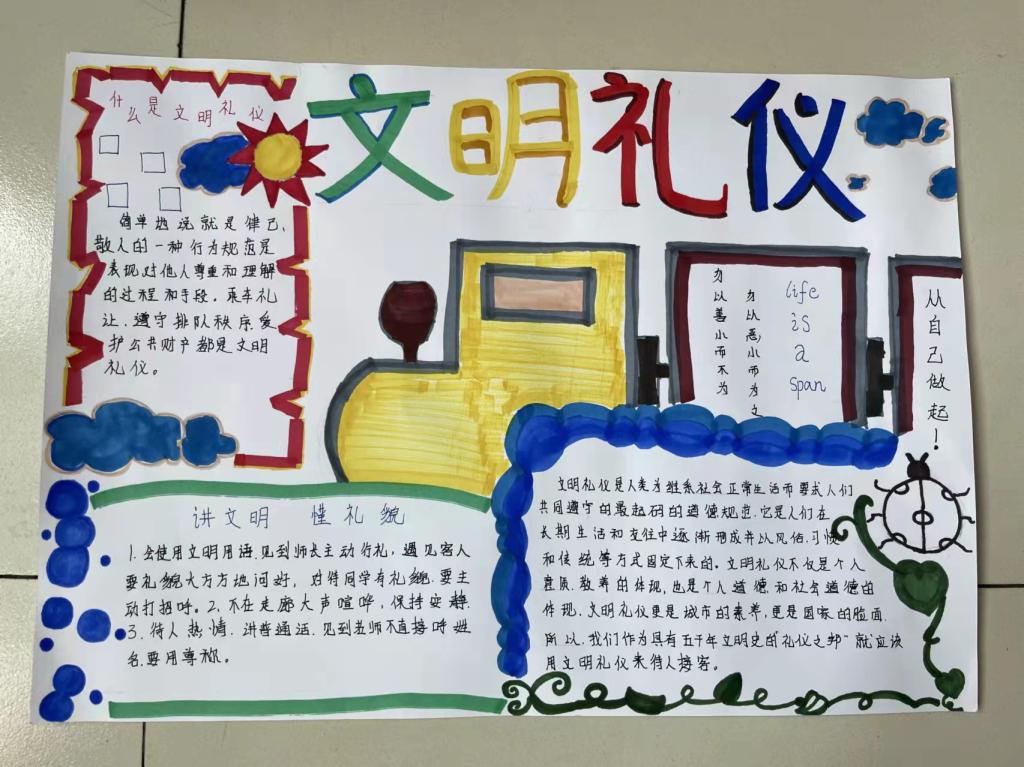 文明礼仪
什么是文明礼仪
简单地说就是律己,
敬人的一种行为规范是
表现对他人尊重和理解
的过程和手段。乘车礼
让.遵守排队秩序爱
护公共财产都是文明
礼仪。
勿以善小而不为
勿以恶小而为之
life
is
a
span
从自己做起!
讲文明 懂礼貌
1.会使用文明用语.见到师长主动行礼,遇见客人
要礼貌大方方地问好,对待同学有礼貌.要主
动打招呼。2.不在走廊大声喧哗,保持安静.
3.待人热情.讲普通话.见到老师不直接呼姓
名.要用尊称。
文明礼仪是人类为维系社会正常生活而要求人们
共同遵守的最起码的道德规范.它是人们在
长期生活和交往中逐渐形成并以风俗.习惯
和传统等方式固定下来的。文明礼仪不仅是个人
素质、教养的体现,也是个人道德和社会道德的
体现.文明礼仪更是城市的素养,更是国家的脸面.
所以.我们作为具有五千年文明史的"礼仪之邦"就应该
用文明礼仪来待人接客。